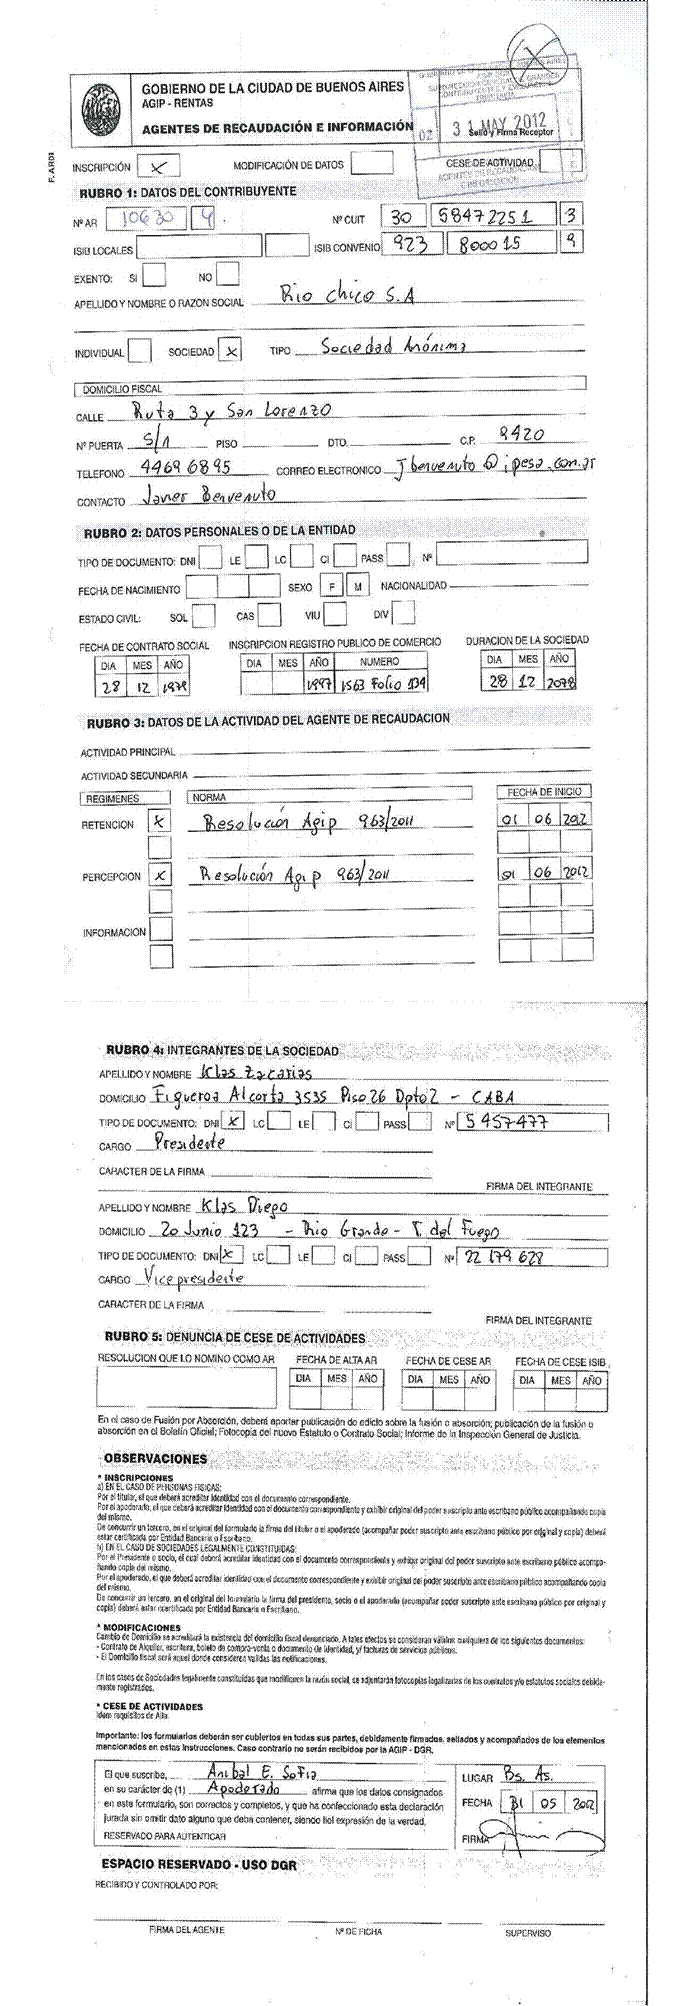 GOBIERNO DE LA CIUDAD DE BUENOS AIRES
AGIP - RENTAS
AGENTES DE RECAUDACIÓN E INFORMACIÓN
02 31 MAY 2012
Sello y Firma Receptor
INSCRIPCIÓN X MODIFICACIÓN DE DATOS CESE DE ACTIVIDAD
RUBRO 1: DATOS DEL CONTRIBUYENTE
Nº AR 10630 4 Nº CUIT 30 58472251 3
ISIB LOCALES ISIB CONVENIO 923 800015 9
EXENTO: SI NO
APELLIDO Y NOMBRE O RAZON SOCIAL Rio Chico S.A
INDIVIDUAL SOCIEDAD X TIPO Sociedad Anónima
DOMICILIO FISCAL
CALLE Ruta 3 y San Lorenzo
Nº PUERTA S/n PISO DTO. C.P. 9420
TELEFONO 4469 6895 CORREO ELECTRONICO Jbenvenuto@ipesa.com.ar
CONTACTO Javier Benvenuto
RUBRO 2: DATOS PERSONALES O DE LA ENTIDAD
TIPO DE DOCUMENTO: DNI LE LC CI PASS Nº
FECHA DE NACIMIENTO SEXO F M NACIONALIDAD
ESTADO CIVIL: SOL CAS VIU DIV
FECHA DE CONTRATO SOCIAL INSCRIPCION REGISTRO PUBLICO DE COMERCIO DURACION DE LA SOCIEDAD
DIA MES AÑO DIA MES AÑO NUMERO DIA MES AÑO
28 12 1979 1997 1563 Folio 134 28 12 2078
RUBRO 3: DATOS DE LA ACTIVIDAD DEL AGENTE DE RECAUDACION
ACTIVIDAD PRINCIPAL
ACTIVIDAD SECUNDARIA
REGIMENES NORMA FECHA DE INICIO
RETENCION X Resolución Agip 963/2011 01 06 2012
PERCEPCION X Resolución Agip 963/2011 01 06 2012
INFORMACION
RUBRO 4: INTEGRANTES DE LA SOCIEDAD
APELLIDO Y NOMBRE Klas Zacarias
DOMICILIO Figueroa Alcorta 3535 Piso 26 Dpto 2 - CABA
TIPO DE DOCUMENTO: DNI X LC LE CI PASS Nº 5 457477
CARGO Presidente
CARACTER DE LA FIRMA
FIRMA DEL INTEGRANTE
APELLIDO Y NOMBRE Klas Diego
DOMICILIO 20 Junio 123 - Rio Grande - T. del Fuego
TIPO DE DOCUMENTO: DNI X LC LE CI PASS Nº 22 179 628
CARGO Vicepresidente
CARACTER DE LA FIRMA
FIRMA DEL INTEGRANTE
RUBRO 5: DENUNCIA DE CESE DE ACTIVIDADES
RESOLUCION QUE LO NOMINO COMO AR FECHA DE ALTA AR FECHA DE CESE AR FECHA DE CESE ISIB
DIA MES AÑO DIA MES AÑO DIA MES AÑO
En el caso de Fusión por Absorción, deberá aportar publicación de edicto sobre la fusión o absorción; publicación de la fusión o
absorción en el Boletín Oficial; Fotocopia del nuevo Estatuto o Contrato Social; Informe de la Inspección General de Justicia.
OBSERVACIONES
* INSCRIPCIONES
a) EN EL CASO DE PERSONAS FISICAS:
Por el titular, el que deberá acreditar identidad con el documento correspondiente.
Por el apoderado, el que deberá acreditar identidad con el documento correspondiente y exhibir original del poder suscripto ante escribano público acompañando copia
del mismo.
De concurrir un tercero, en el original del formulario la firma del titular o el apoderado (acompañar poder suscripto ante escribano público por original y copia) deberá
estar certificada por Entidad Bancaria o Escribano.
b) EN EL CASO DE SOCIEDADES LEGALMENTE CONSTITUIDAS:
Por el Presidente o socio, el cual deberá acreditar identidad con el documento correspondiente y exhibir original del poder suscripto ante escribano público acompa-
ñando copia del mismo.
Por el apoderado, el que deberá acreditar identidad con el documento correspondiente y exhibir original del poder suscripto ante escribano público acompañando copia
del mismo.
De concurrir un tercero, en el original del formulario la firma del presidente, socio o el apoderado (acompañar poder suscripto ante escribano público por original y
copia) deberá estar certificada por Entidad Bancaria o Escribano.
* MODIFICACIONES
Cambio de Domicilio se acreditará la existencia del domicilio fiscal denunciado. A tales efectos se consideran válidos cualquiera de los siguientes documentos:
- Contrato de Alquiler, escritura, boleto de compra-venta o documento de identidad, y/ facturas de servicios públicos.
- El Domicilio fiscal será aquel donde consideren validas las notificaciones.
En los casos de Sociedades legalmente constituidas que modifiquen la razón social, se adjuntarán fotocopias legalizadas de los contratos y/o estatutos sociales debida-
mente registrados.
* CESE DE ACTIVIDADES
Idem requisitos de Alta.
Importante: los formularios deberán ser cubiertos en todas sus partes, debidamente firmados, sellados y acompañados de los elementos
mencionados en estas Instrucciones. Caso contrario no serán recibidos por la AGIP - DGR.
El que suscribe, Anibal E. Sofia LUGAR Bs. As.
en su carácter de (1) Apoderado afirma que los datos consignados
en este formulario, son correctos y completos, y que ha confeccionado esta declaración FECHA 31 05 2012
jurada sin omitir dato alguno que deba contener, siendo fiel expresión de la verdad.
RESERVADO PARA AUTENTICAR FIRMA
ESPACIO RESERVADO - USO DGR
RECIBIDO Y CONTROLADO POR:
FIRMA DEL AGENTE Nº DE FICHA SUPERVISO